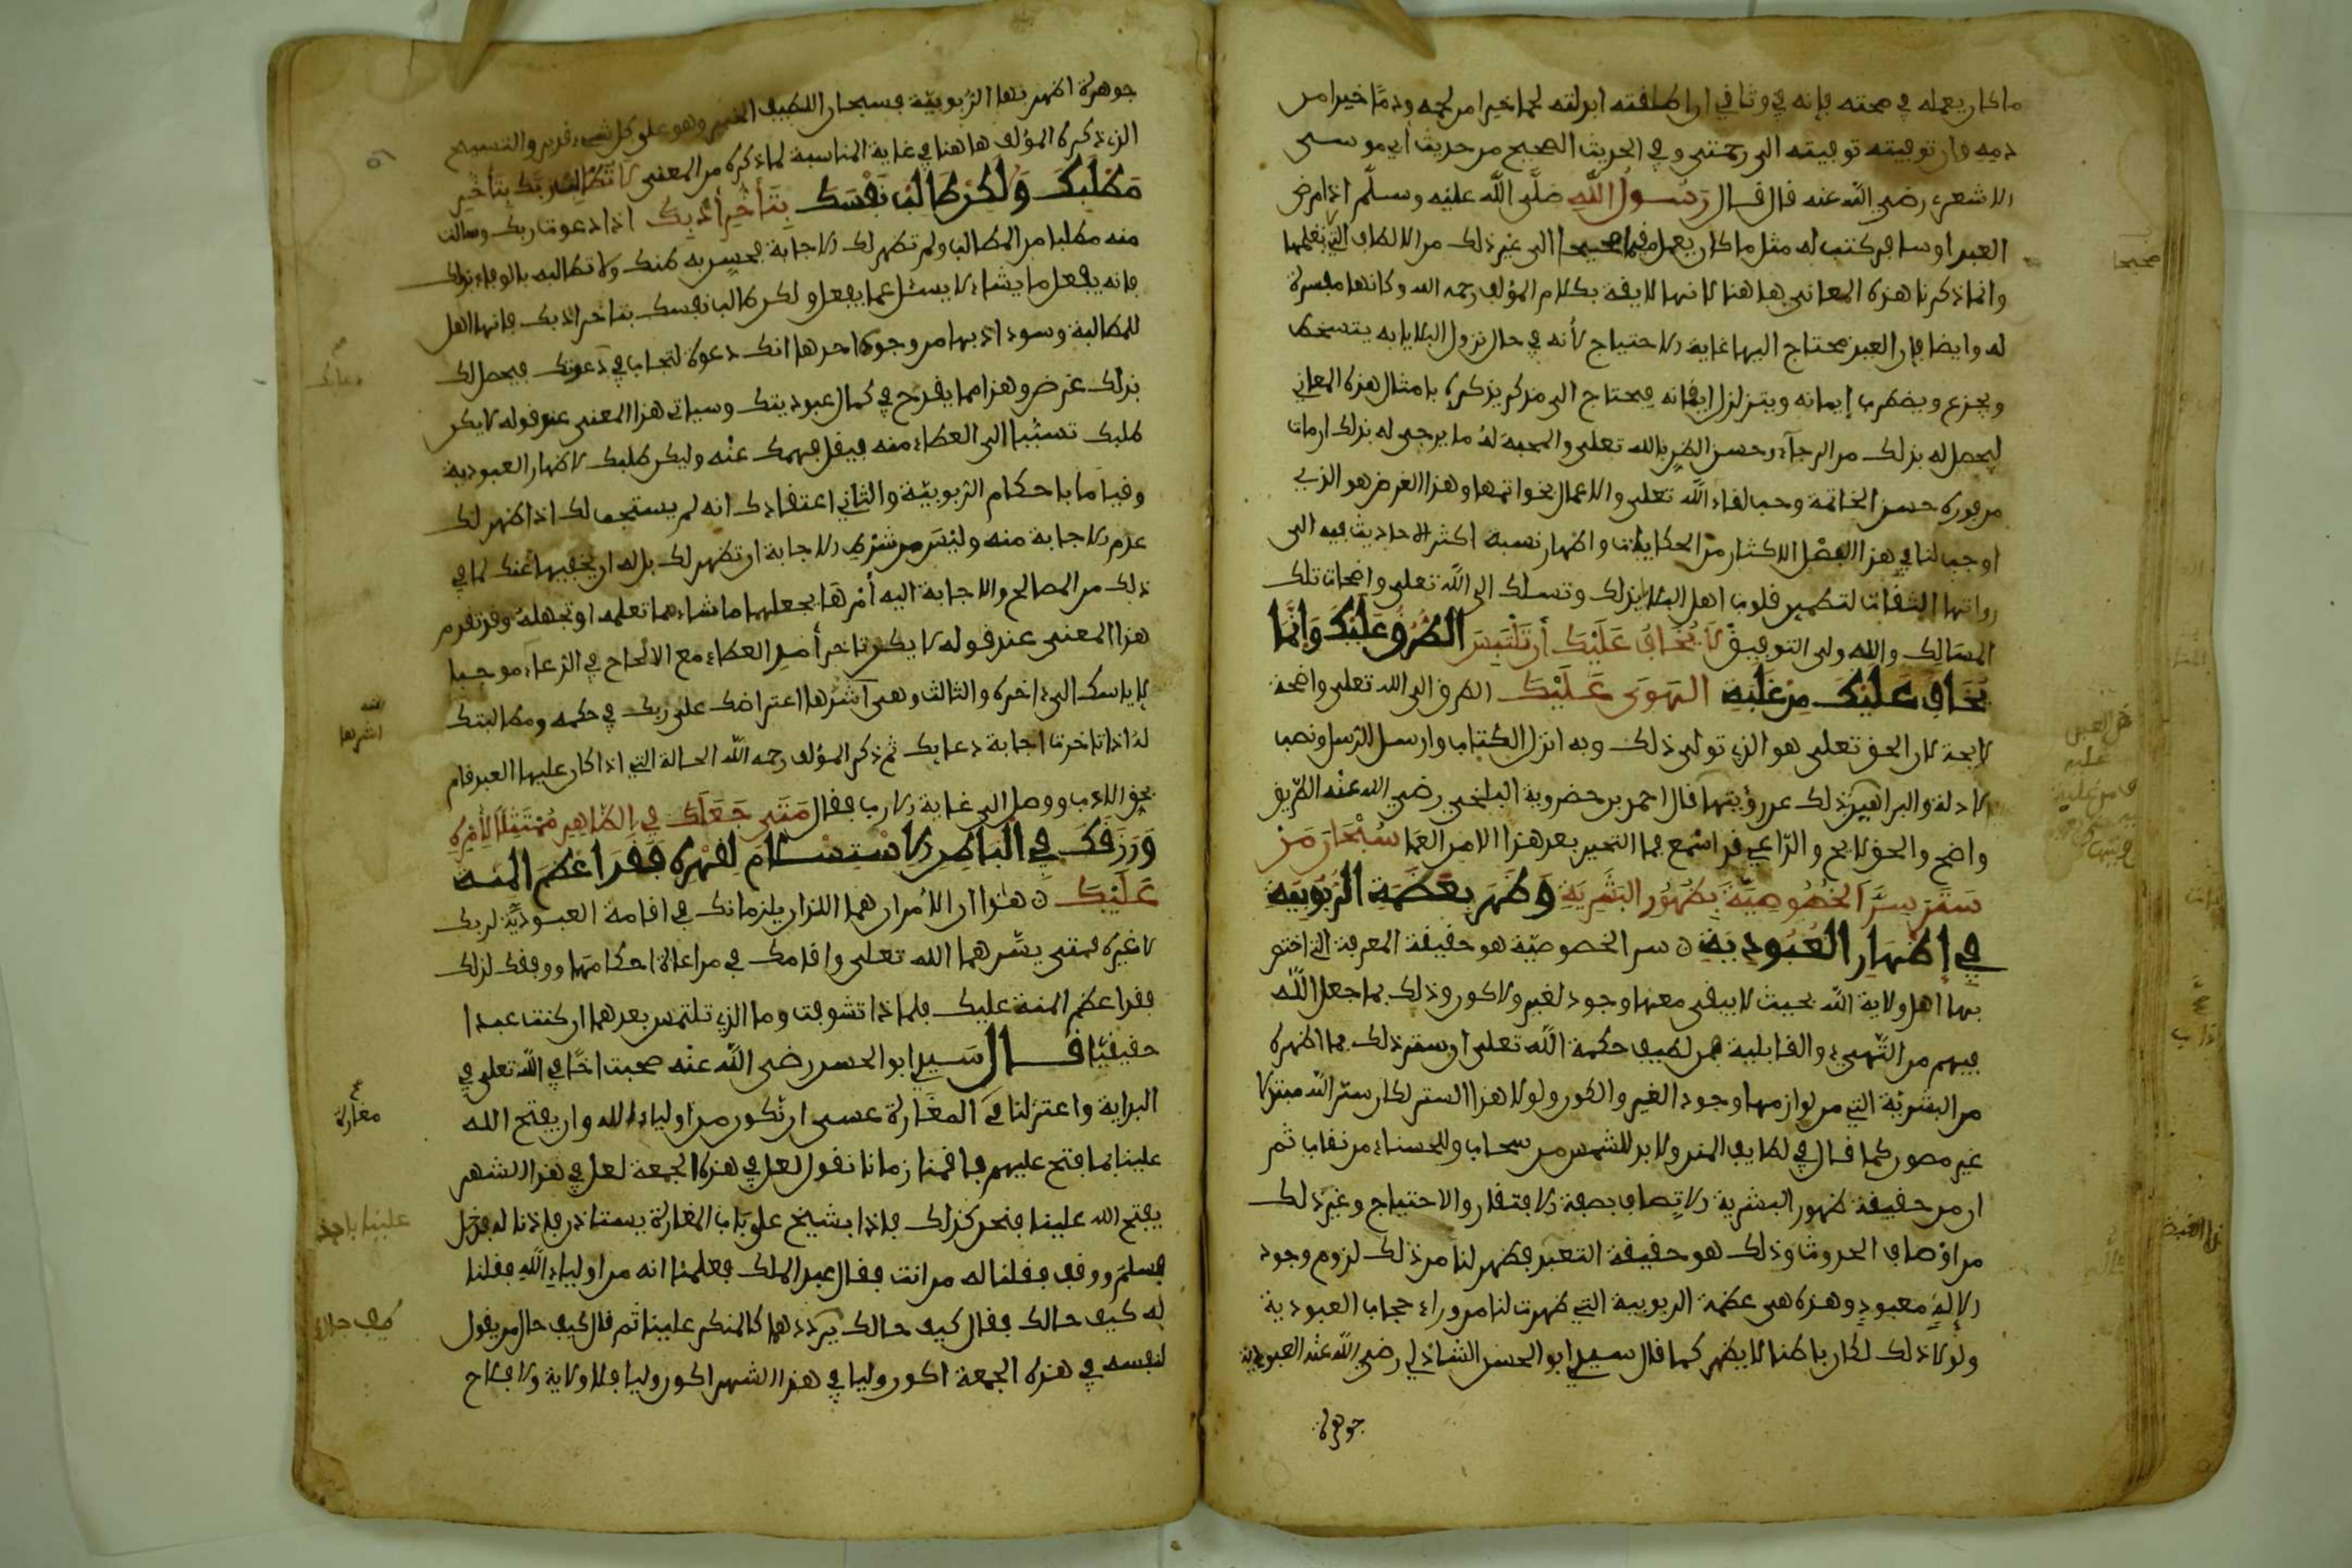 ما كان يعمله في صحته فإنه في وثاقي ان اطلقته ابدلته لحما خيرا من لحمه ودمًا خيرا من
دمه وان توفيته توفيته الى رحمتي وفي الحديث الصحيح من حديث أبي موسى
الاشعري رضي الله عنه قال قال رَسُولُ اللَّهِ صَلَّى اللَّه عليه وسلَّم اذا مرض
العبد او سافر كتب له مثل ما كان يعمل مقيما صحيحا الى غير ذلك من الالطاف التي تعلمها
وانما ذكرنا هذه المعاني هاهنا لانها لايقة بكلام المؤلف رحمه الله وكانها مفسرة
له وايضا فإن العبد محتاج اليها غاية الاحتياج لأنه في حال نزول البلايا به يتسخط
ويجزع ويضطرب إيمانه ويتزلزل ايقانه فيحتاج الى مذكر يذكره بامثال هذه المعاني
ليحصل له بذلك من الرجاء وحسن الظن بالله تعلى والمحبة لهُ ما يرجى له بذلك ان مات
من فوره حسن الخاتمة وحب لقاء اللَّه تعلى والاعمال بخواتمها وهذا الغرض هو الذي
اوجب لنا في هذا الفصل الاكثار من الحكايات واظهار نسبة اكثر الاحاديث فيه الى
رواتها الثقات لتطمين قلوب اهل البلايا بذلك وتسلك الى الله تعلى واضحات تلك
المسالك والله ولي التوفيق لَا يُخَافُ عَلَيْكَ أن تَلْتَبِسَ الطُّرُقُ عَلَيْكَ وَإنَّمَا
يُخَافُ عَلَيْكَ مِنْ غَلَبَةِ الهَوَى عَلَيْكَ الطرق الى الله تعلى واضحة
لايحة لان الحق تعلى هو الذي تولى ذلك وبه انزل الكتاب وارسل الرسل ونصب
الادلة والبراهين ذلك عن رؤيتها قال احمد بن حضروية البلخي رضي الله عنه الطّريق
واضح والحق لايح والدّاعي قد اسْمع فما التحير بعد هذا الا من العما سُبْحَانَ مَنْ
سَتَرَ سِرَّ الخُصُوصِيَّةِ بِظُهُورِ البَشَرِيَةِ وَظَهَرَ بِعَظَمَةِ الرُّبُوبِيَّةِ
فِي إِظْهَارِ العُبُودِيَةِ ن سر الخصوصيّة هو حقيقة المعرفة التي اختص
بها اهل ولاية الله بحيث لا يبقى معها وجود لغير ولا كون وذلك بما جعل اللَّه
فيهم من التّهيئ والقابلية فمن لطيف حكمة اللَّه تعلى ان ستر ذلك بما اظهره
من البشريّة التي من لوازمها وجود الغير والكون ولولا هذا الستر لكان سترّ اللَّه مبتذلا
غير مصون كما قال في لطايف المنن ولا بد للشمس من سحاب وللحسناء من نقاب ثم
ان من حقيقة ظهور البشرية الاتصاف بصفة الافتقار والاحتياج وغير ذلك
من اوْصاف الحدوث وذلك هو حقيقة التعبد فظهر لنا من ذلك لزوم وجود
الإلهٍ معبودٍ وهذه هي عظمة الربوبية التي ظهرت لنا من وراء حجاب العبودية
ولولا ذلك لكان باطنا لا يظهر كما قال سيدي ابو الحسن الشاذلي رضي اللَّه عنه العبودية
جوهرة
صحيحا
جوهرة اظهر بها الرُّبوبيّة فسبحان اللطيف الخبير وهو على كل شيء قدير والتسبيح
الذي ذكره المؤلف هاهنا في غاية المناسبة لما ذكره من المعنى لا تُطَالِبْ رَبَّكَ بِتَأَخُّرِ
مَطْلَبِكَ وَلَكِنْ طَالِبْ نَفْسَكَ بِتَأَخُّرِ أَدَبِكَ اذا دعوت ربك وسالت
منه مطلبا من المطالب ولم تظهر لك الاجابة فحسن به ظنك ولا تطالبه بالوفاء بذلك
فانه يفعل ما يشاء لا يسئل عما يفعل ولكن طالب نفسك بتاخر ادبك فانها اهل
للمطالبة وسوء ادبها من وجوه احدها انك دعوت لتجاب في دعوتك فيحصل لك
بذلك غرض وهذا مما يقدح في كمال عبوديتك وسياتي هذا المعنى عند قوله لا يكن
طلبك تسبّبا الى العطاء منه فيقل فهمك عنْه وليكن طلبك لاظهار العبودية
وقياما باحكام الربوبيّة والثاني اعتقادك انه لم يستجب لك اذا ظهر لك
عدم الاجابة منه وليْس من شرْط الاجابة ان تظهر لك بل له ان يخفيها عَنك لما في
ذلك من المصالح والاجابة اليه أمْرهَا يجعلها ما شاء مما تعلمه او تجهلهُ وقد تقدم
هذا المعنى عند قوله لا يكن تاخر أمد العطاء مع الالحاح في الدعاء موجبا
لاياسك الى اخره والثالث وهي أشرّها اعتراضك على ربك في حكمه ومطالبتك
لهُ اذا تاخرت اجابة دعايك ثم ذكر المؤلف رحمه الله الحالة التي اذا كان عليها العبد قام
بحق الادب ووصل الى غاية الارب فقال مَتَى جَعَلَكَ فِي الظَّاهِرِ مُمْتَثِلًا لِأَمْرِهِ
وَرَزَقَكَ فِي الْبَاطِنِ الاسْتِسْلَامَ لِقَهْرِهِ فَقَدَ اعْظَمَ المِنَّة
عَلَيْكَ ن هذا ان الأمران هما اللذان يلزمانك في اقامة العبوديّة لربك
لا غيره فمتى يسَّر هما الله تعلى واقامك في مراعاة احكامها ووفقك لذلك
فقد اعظم المنة عليك فلما ذا تشوقت وما الذي تلتمس بعدهما ان كنت عبدا
حقيقيًّا قال سَيدي ابو الحسن رضي اللَّه عنْه صحبت اخًا في الله تعلى في
البداية واعتزلنا في المغارة عسى ان نكون من اولياء الله وان يفتح الله
علينا بما فتح عليهم فاقمنا زمانا نقول لعل في هذه الجمعة لعل في هذا الشهر
يفتح الله علينا فنحن كذلك فاذا بشيخ على بَاب المغارة يستاذن فاذنا له فدخل
فسلمَ ووقف فقلنا له من انت فقال عبد الملك فعلمنا انه من اولياءِ اللَّهِ فقلنا
له كيف حالك فقال كيف حالك يردد هما كالمنكر علينا ثم قال كيف حال من يقول
لنفسه في هذه الجمعة اكون وليا في هذا الشهر اكون وليا فلا ولاية ولا فلاح
دعائك
اشرها
مغارة